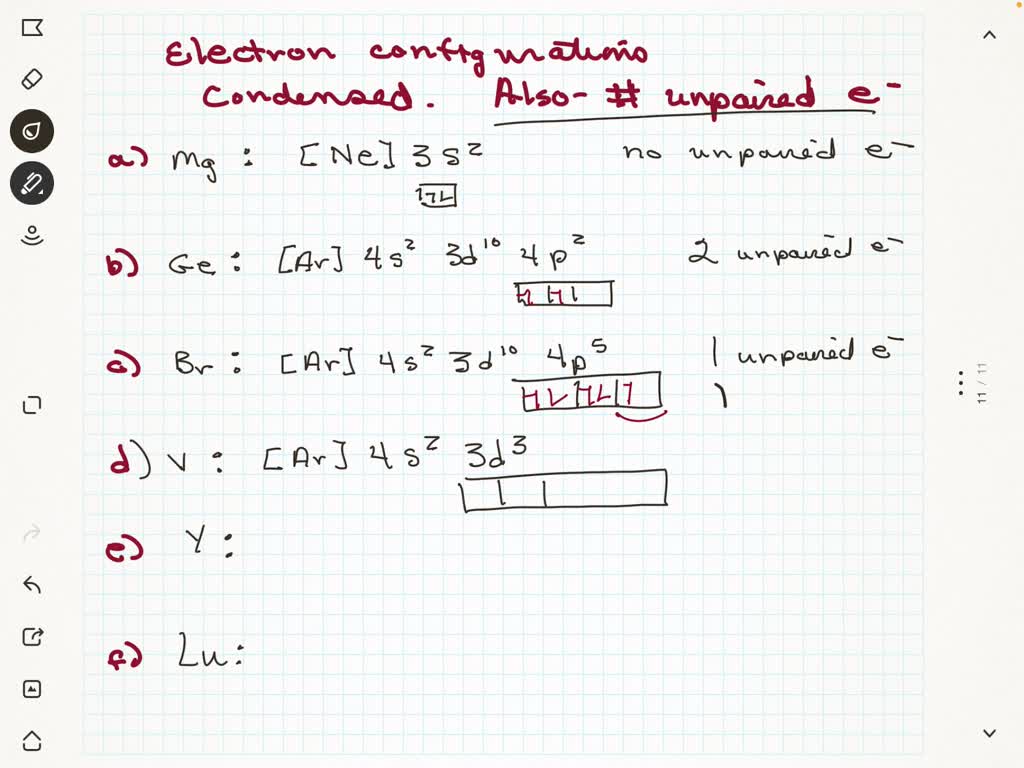 Electron configurations
Condensed. Also- # unpaired e⁻
a) Mg : [Ne] 3s² no unpaired e⁻
b) Ge : [Ar] 4s² 3d¹⁰ 4p² 2 unpaired e⁻
c) Br : [Ar] 4s² 3d¹⁰ 4p⁵ 1 unpaired e⁻
d) V : [Ar] 4s² 3d³
e) Y :
f) Lu :
11 / 11